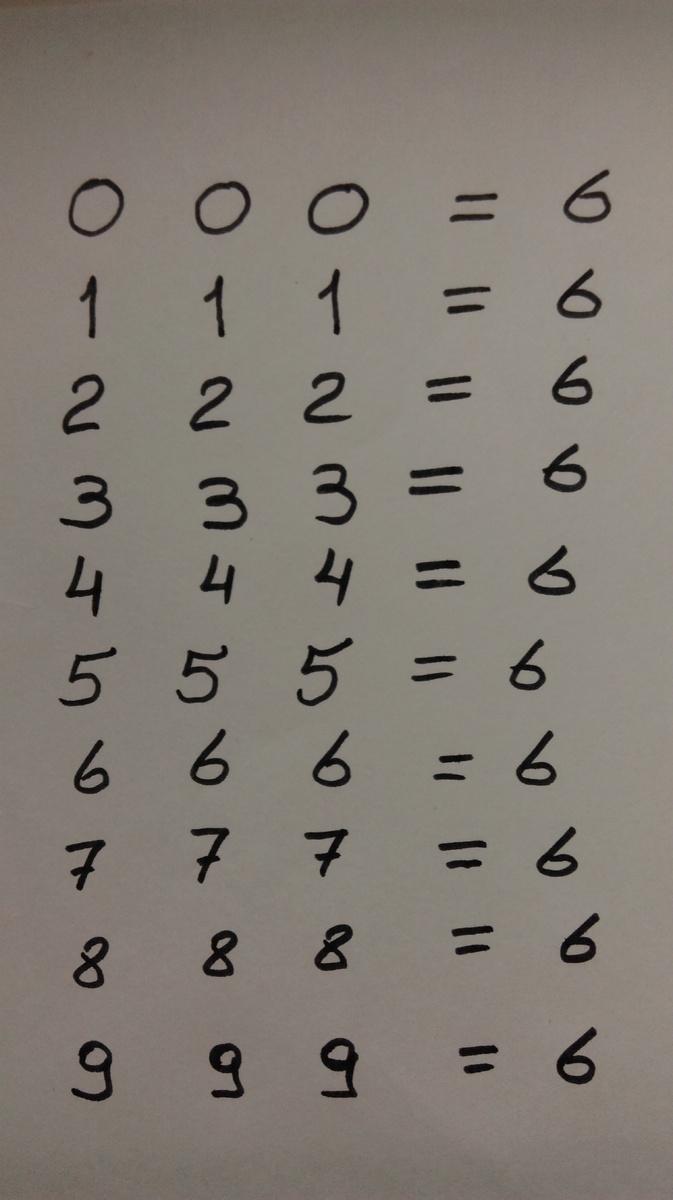 0 0 0 = 6
1 1 1 = 6
2 2 2 = 6
3 3 3 = 6
4 4 4 = 6
5 5 5 = 6
6 6 6 = 6
7 7 7 = 6
8 8 8 = 6
9 9 9 = 6